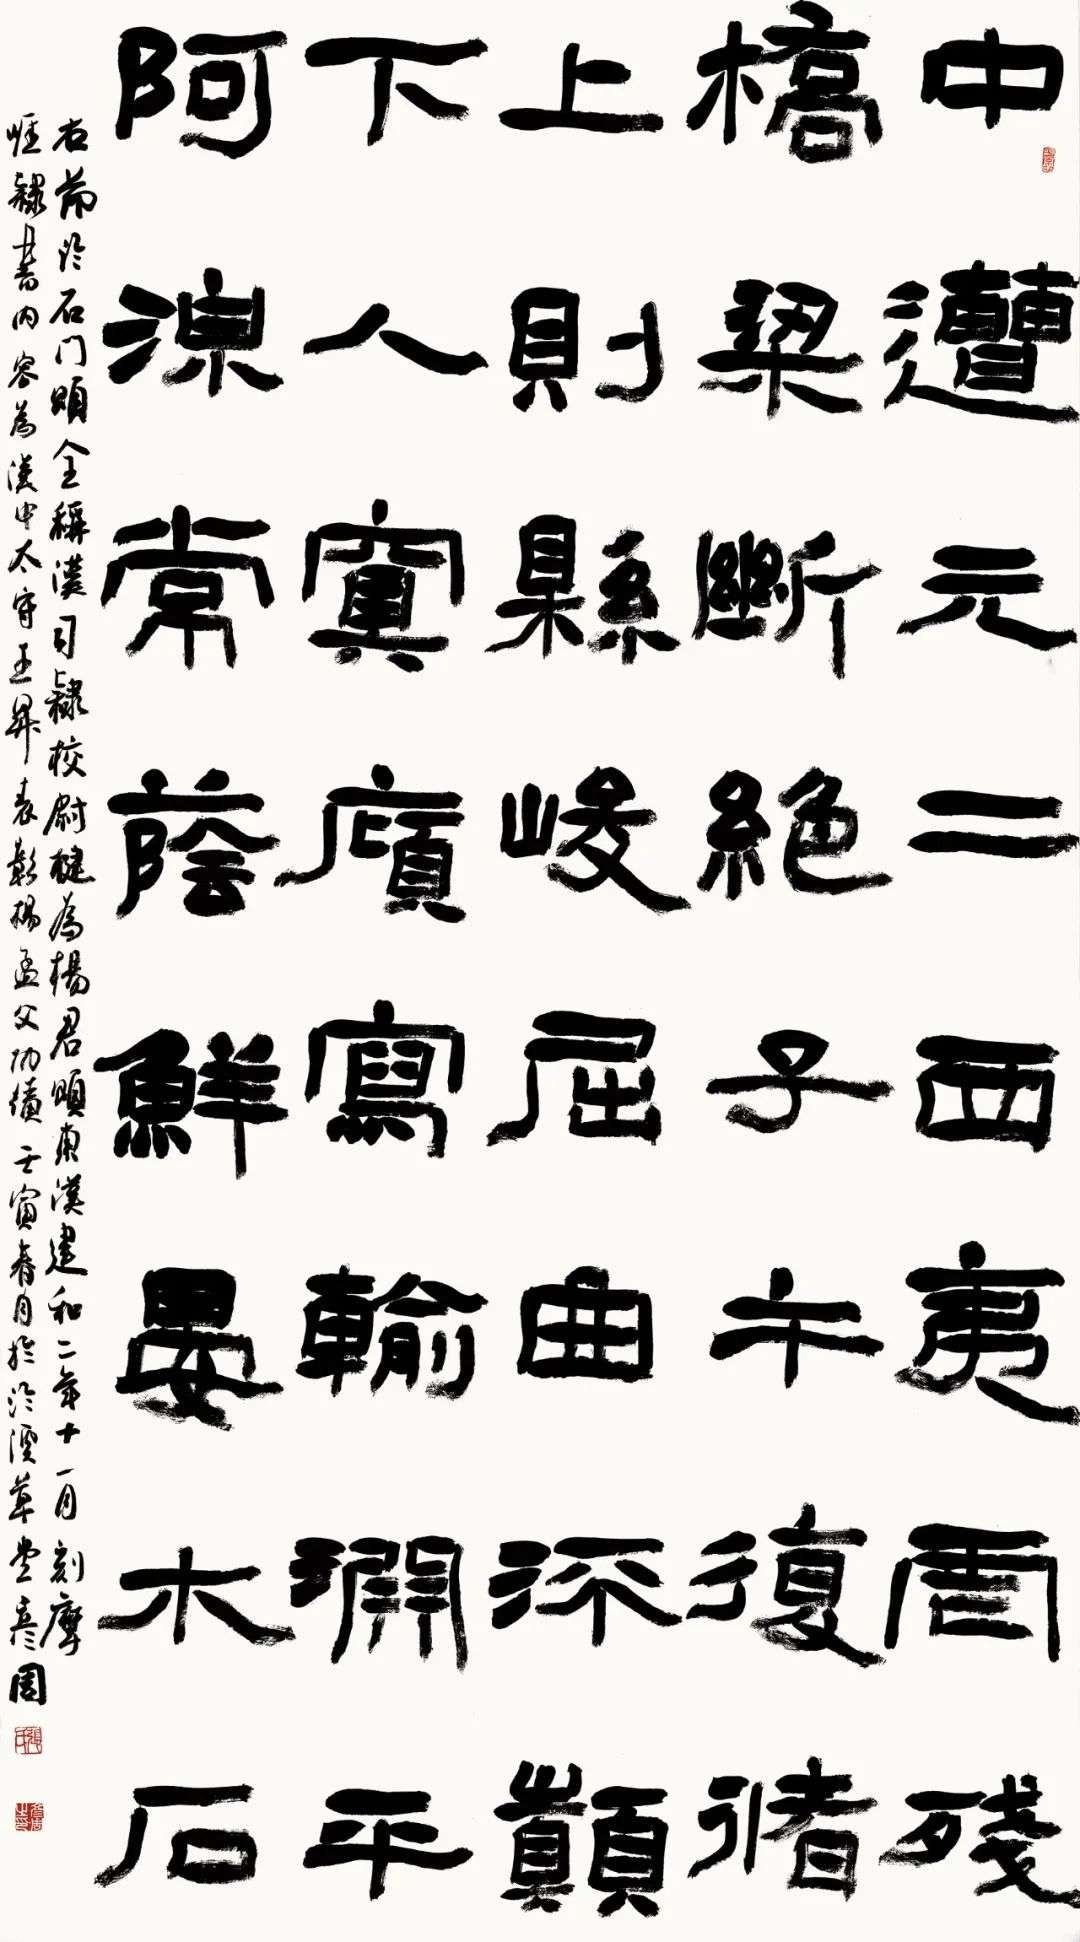 中遭元二西夷虐殘
橋梁斷絕子午復循
上則縣峻屈曲流顛
下入冥廎寫輸淵平
阿涼常蔭鮮晏木石
右節臨石門頌全稱漢司隸校尉楗為楊君頌東漢建和二年十一月刻摩
崖隸書內容為漢中太守王昇表彰楊孟父功績壬寅春月於臨溪草堂彥周